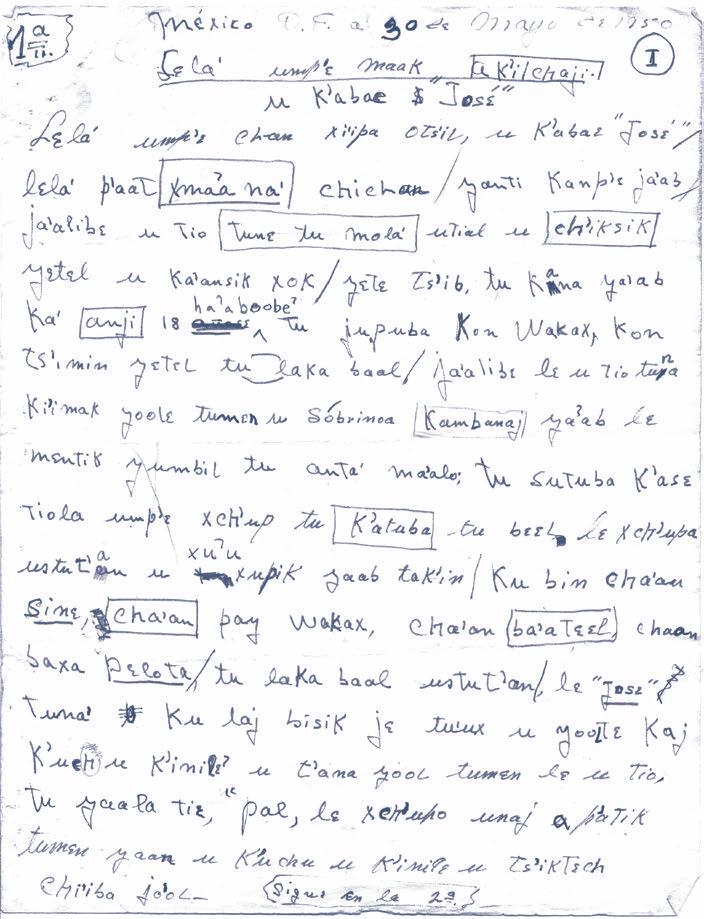 1ª
México D.F. a 30 de Mayo de 1950
I
Lelá ump'e maak akilchaji.
u K'abae "José"
Lelá ump'e chan xi'ipa otsil, u K'abae "José"/
lelá p'aat xma'a na' chichan/ yanti Kanp'e ja'ab/
ja'alibe u tio tune tu mola' utial u ch'iksik
yetel u Ka'ansik xok/ yete ts'ib, tu Kana ya'ab
Ka' anji 18 ha'aboobe' tu jupuba Kon Wakax, Kon
ts'imin yetel tu laka baal/ ja'alibe le u tio tuna
Ki'imak yoole tumen u Sóbrinoa Kambanaj ya'ab le
mentik yumbil tu anta' ma'alo; tu sutuba K'ase
tiola ump'e xch'up tu K'atuba tu beel le xch'upa
ustut'an u xu'u xupik yaab tak'in/ Ku bin cha'an
Sine, cha'an pay wakax, cha'an ba'ateel chaan
baxa Pelota,/ tu laka baal ustut'an/, le "José"
tuna' Ku laj bisik je tu'ux u yoolte Kaj
K'uch u K'inile' u t'ana yool tumen le u tio,
tu yaala tie, "pal, le xch'upo unaj a p'atik
tumen yaan u K'uchu u K'inile u ts'iktech
chi'iba jo'ol-
(Sigue en la 2ª.)